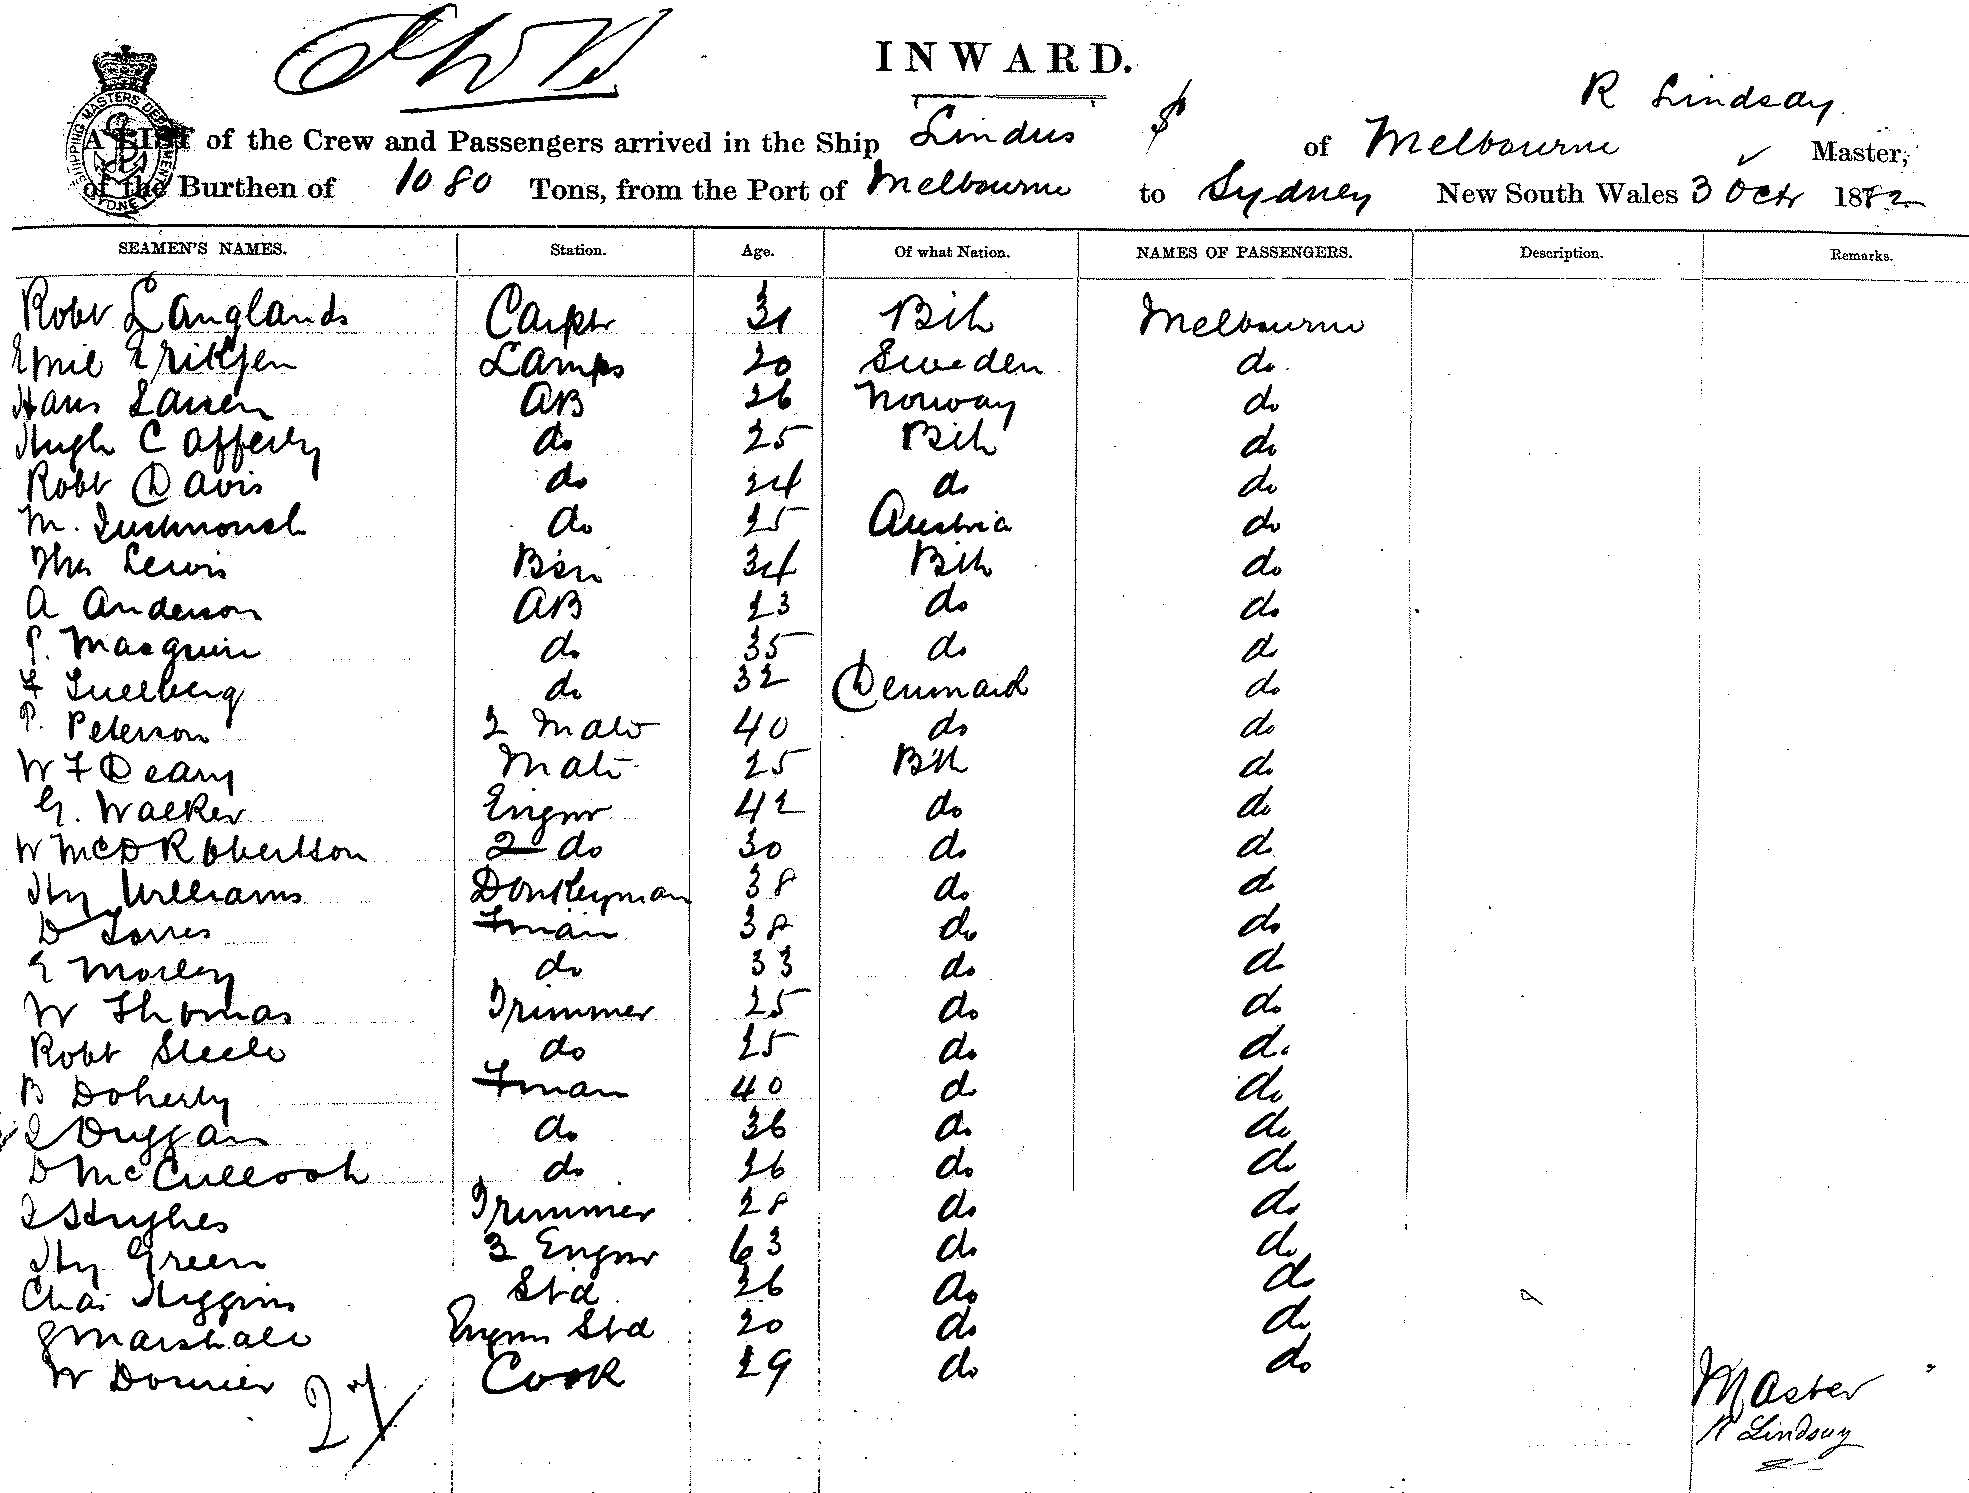 INWARD.
R Lindsay
A LIST of the Crew and Passengers arrived in the Ship Lindus of Melbourne Master,
of the Burthen of 1080 Tons, from the Port of Melbourne to Sydney New South Wales 3 Octr 1882
SEAMEN'S NAMES. Station. Age. Of what Nation. NAMES OF PASSENGERS. Description. Remarks.
Robt Langlands Carptr 31 Bth Melbourne
Emil Eriksen Lamps 20 Sweden do
Hans Larsen AB 26 Norway do
Hugh Cafferty do 25 Bth do
Robt Davis do 24 do do
M. do 25 Austria do
Thos Lewis Bsn 34 Bth do
A Anderson AB 23 do do
Macguire do 35 do do
do 32 Denmark do
P. Peterson 2 Mate 40 do do
W F Deary Mate 25 Bth do
G. Walker Engnr 42 do do
W McD Robertson 2 do 30 do do
Hy Williams Donkeyman 38 do do
D Torres Fman 38 do do
E Morley do 33 do do
W Thomas Trimmer 25 do do
Robt Steele do 25 do do
B Doherty Fman 40 do do
J Duggan do 36 do do
D McCulloch do 26 do do
J Hughes Trimmer 28 do do
Hy Green 3 Engnr 63 do do
Chas Higgins Std 36 do do
J Marshall Engnrs Std 20 do do
W Cook 29 do do
27
Master
R Lindsay